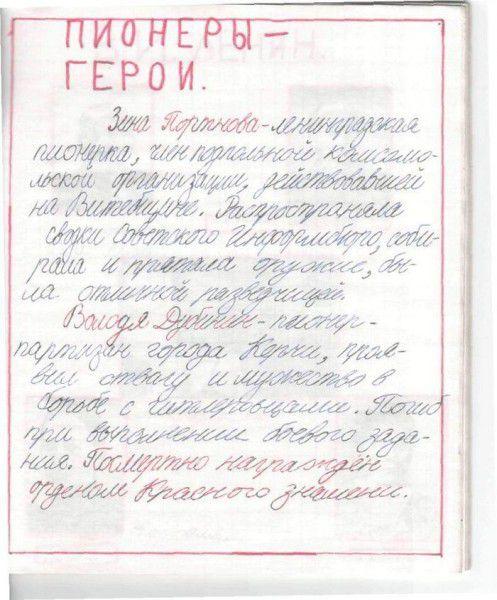 ПИОНЕРЫ —
ГЕРОИ.
Зина Портнова - ленинградская
пионерка, член подпольной комсомо-
льской организации, действовавшей
на Витебщине. Распространяла
сводки Советского Информбюро, соби-
рала и прятала оружие, бы-
ла отличной разведчицей.
Володя Дубинин - пионер -
партизан города Керчи, проя-
вил отвагу и мужество в
борьбе с гитлеровцами. Погиб
при выполнении боевого зада-
ния. Посмертно награждён
орденом Красного знамени.